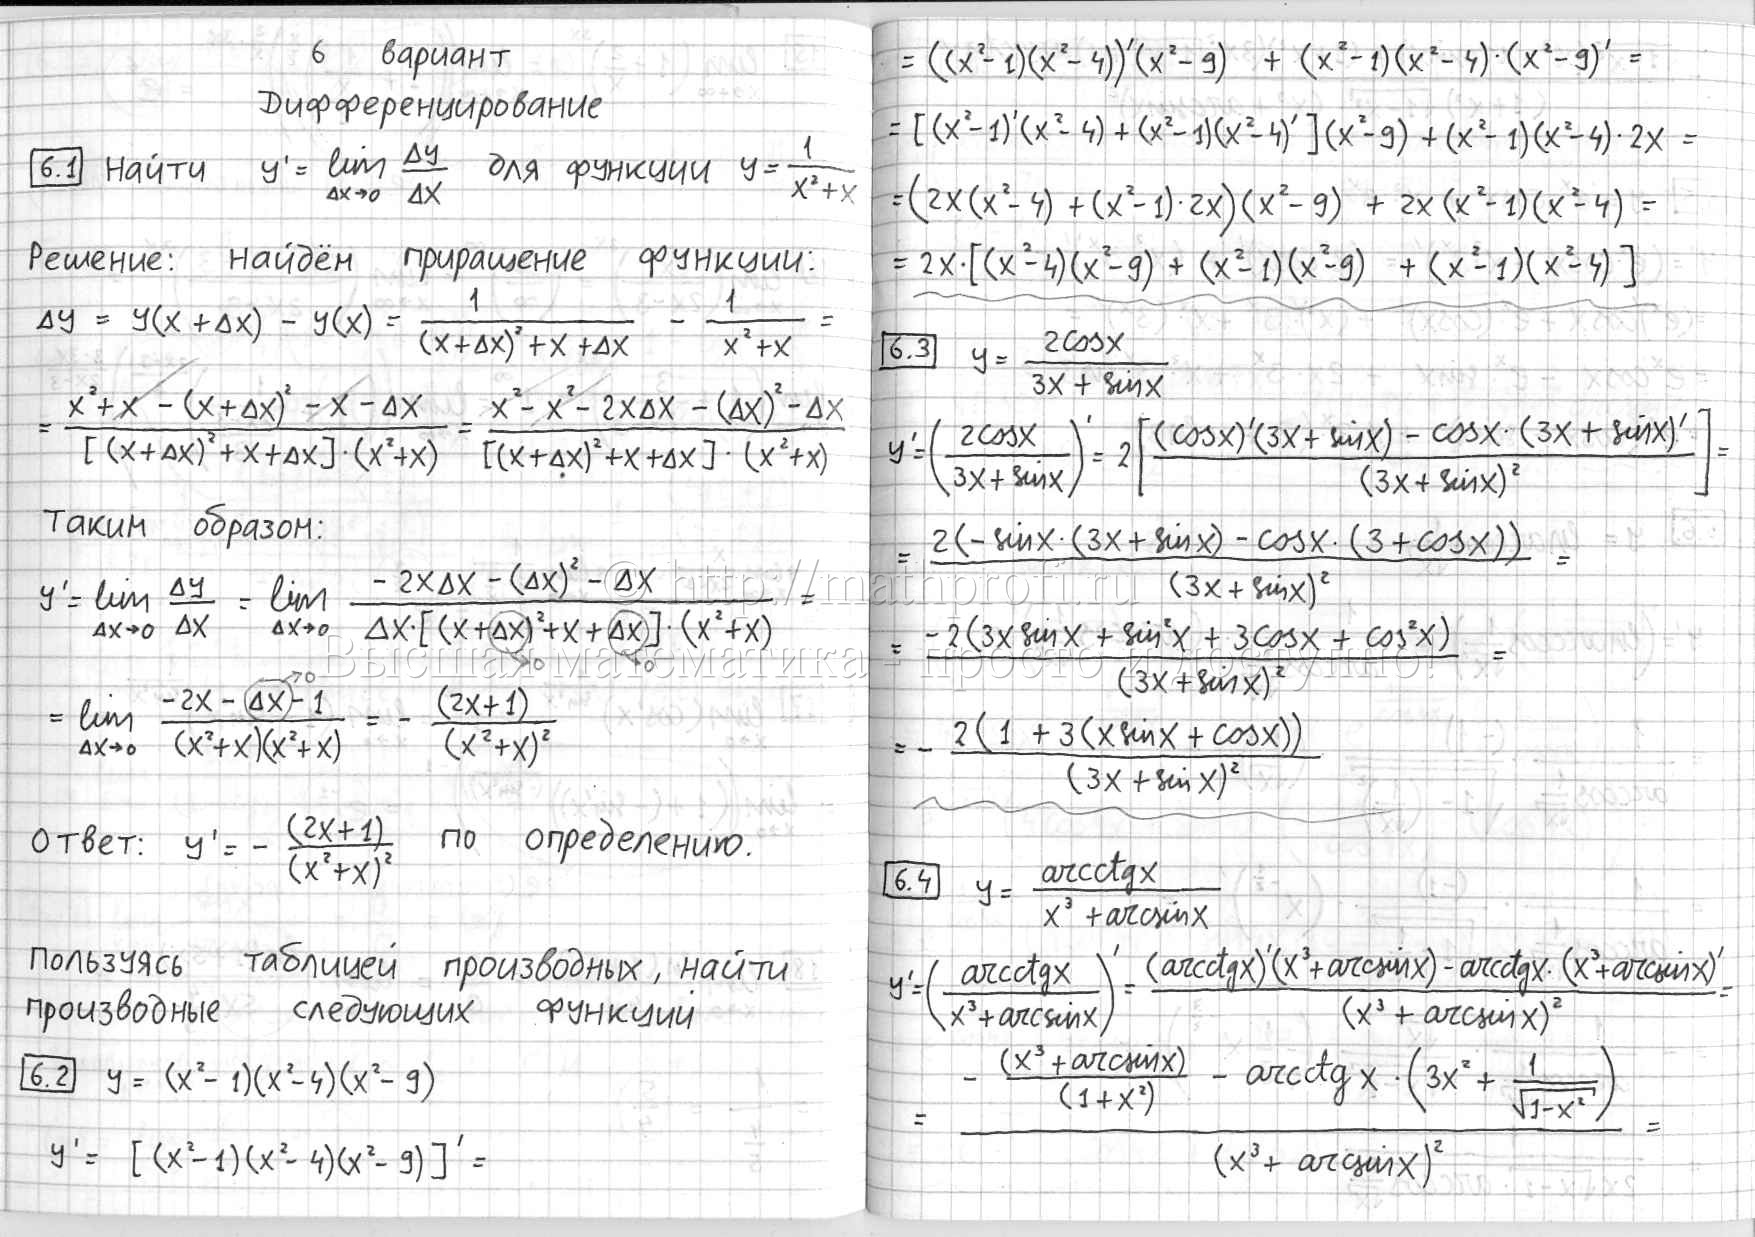 6 вариант
Дифференцирование
6.1 Найти y' = lim_{Δx→0} Δy/Δx для функции y = 1/(x²+x)
Решение: найдём приращение функции:
Δy = y(x+Δx) - y(x) = 1/((x+Δx)²+x+Δx) - 1/(x²+x) =
= (x²+x-(x+Δx)²-x-Δx)/([(x+Δx)²+x+Δx]·(x²+x)) = (x²-x²-2xΔx-(Δx)²-Δx)/([(x+Δx)²+x+Δx]·(x²+x))
Таким образом:
y' = lim_{Δx→0} Δy/Δx = lim_{Δx→0} (-2xΔx-(Δx)²-Δx)/(Δx·[(x+Δx)²+x+Δx]·(x²+x)) =
→0 →0
= lim_{Δx→0} (-2x-Δx-1)/((x²+x)(x²+x)) = - (2x+1)/(x²+x)²
→0
Ответ: y' = - (2x+1)/(x²+x)² по определению.
Пользуясь таблицей производных, найти
производные следующих функций
6.2 y = (x²-1)(x²-4)(x²-9)
y' = [(x²-1)(x²-4)(x²-9)]' =
= ((x²-1)(x²-4))'(x²-9) + (x²-1)(x²-4)·(x²-9)' =
= [(x²-1)'(x²-4)+(x²-1)(x²-4)'](x²-9)+(x²-1)(x²-4)·2x =
= (2x(x²-4)+(x²-1)·2x)(x²-9) + 2x(x²-1)(x²-4) =
= 2x·[(x²-4)(x²-9) + (x²-1)(x²-9) + (x²-1)(x²-4)]
6.3 y = 2cosx/(3x+sinx)
y' = (2cosx/(3x+sinx))' = 2[((cosx)'(3x+sinx)-cosx·(3x+sinx)')/(3x+sinx)²] =
= 2(-sinx·(3x+sinx)-cosx·(3+cosx))/(3x+sinx)² =
= -2(3xsinx+sin²x+3cosx+cos²x)/(3x+sinx)² =
= - 2(1+3(xsinx+cosx))/(3x+sinx)²
6.4 y = arcctgx/(x³+arcsinx)
y' = (arcctgx/(x³+arcsinx))' = ((arcctgx)'(x³+arcsinx)-arcctgx·(x³+arcsinx)')/(x³+arcsinx)² =
= (-(x³+arcsinx)/(1+x²) - arcctgx·(3x²+1/√(1-x²)))/(x³+arcsinx)² =
© http://mathprofi.ru
Высшая математика - просто и доступно!